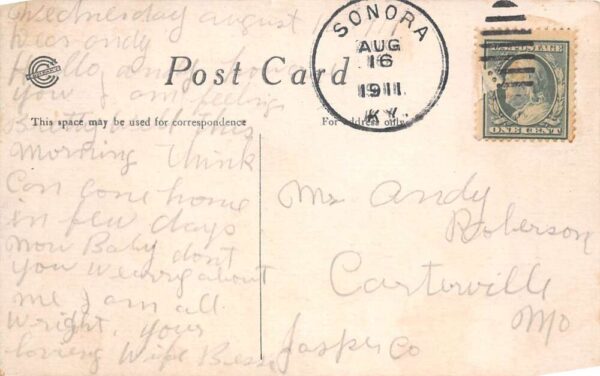 Wednesday August
Dear Andy
Hello Andy how are
you I am feeling
Pretty good this
morning think
Can come home
in few days
now Baby dont
you worry about
me I am all
wright. your
loving Wife Bess
Post Card
This space may be used for correspondence
For address only
SONORA
AUG
16
1911.
KY.
U.S. POSTAGE
ONE CENT
Mr Andy
Roberson
Carterville
Mo
Jasper Co